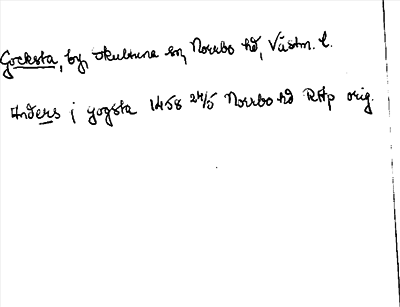 Gocksta, by, Skultuna sn, Norrbo hd, Västm. l.
Anders j gogsta 1458 24/5 Norrbo hd RAp orig.